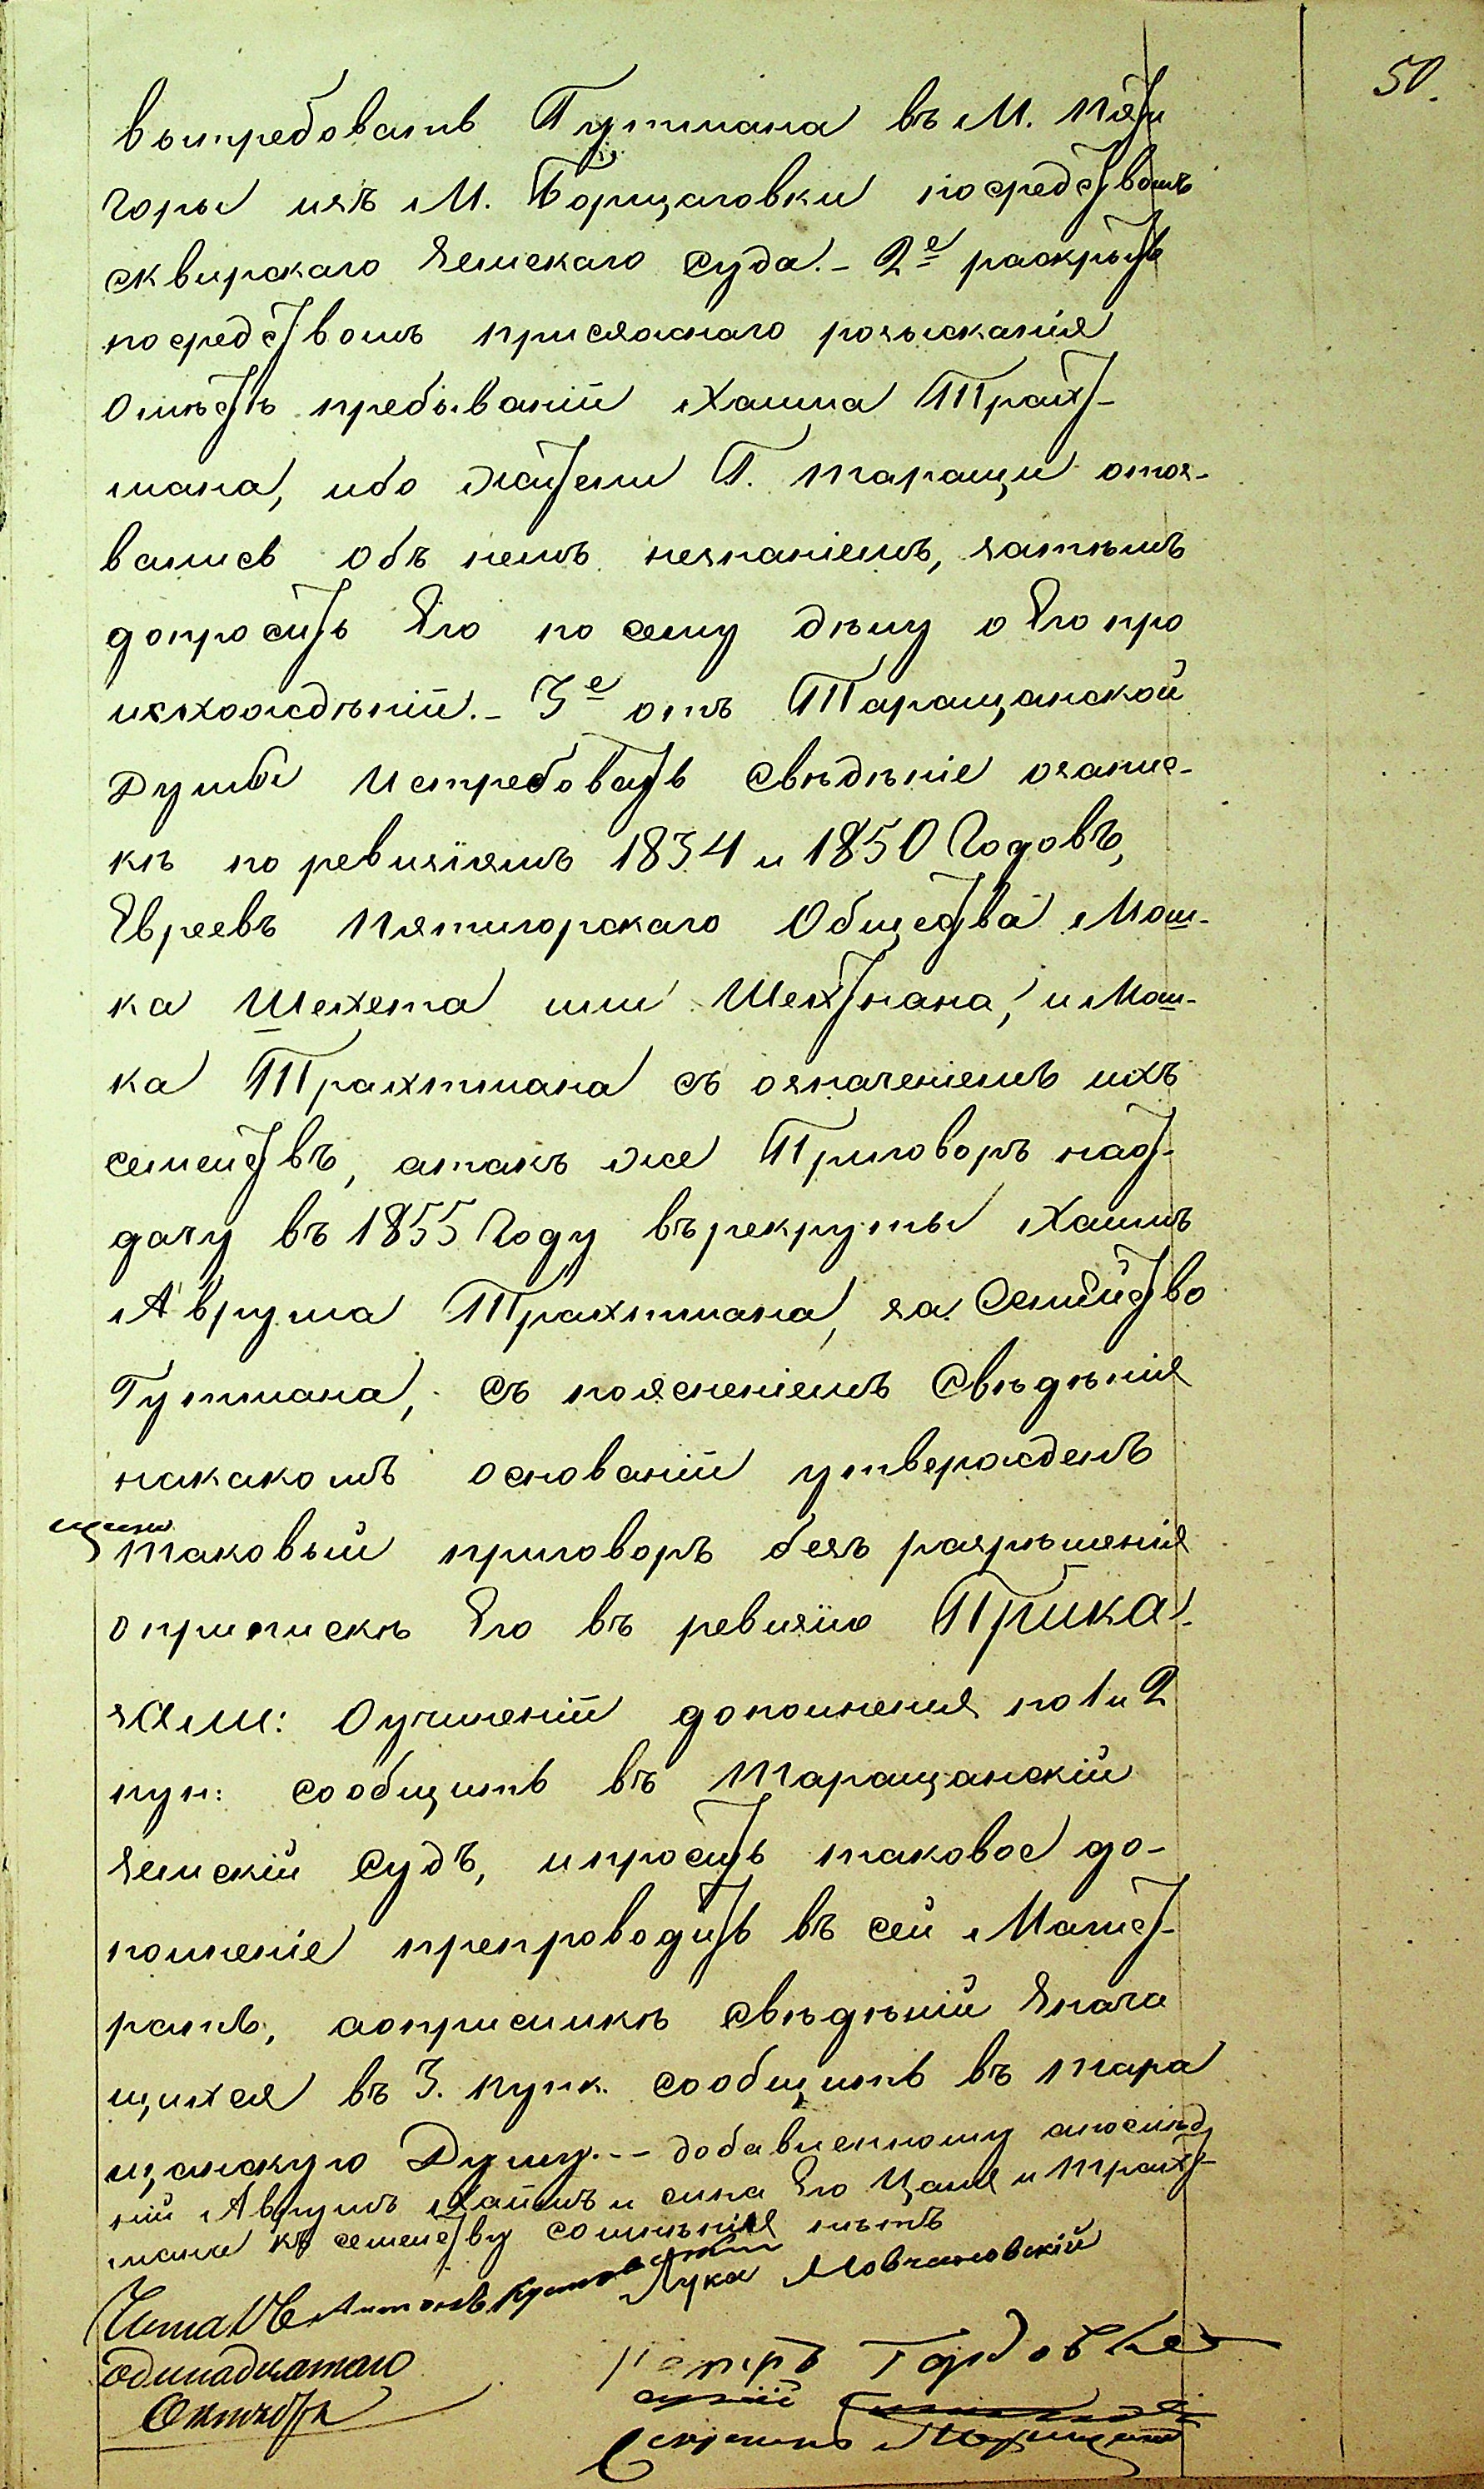 50.
вытребовать Гутмана въ М. Пяти
горы изъ М. Борщаговки посредствомъ
сквирскаго Земскаго Суда. – 2е раскрыть
посредствомъ присяжнаго розысканія
омѣстѣ пребываніи Хаима Трахт-
мана, ибо жители Г. Таращи отоз-
вались объ немъ незнаніемъ, затѣмъ
допросить Его по сему дѣлу о Его про
изхождѣніи. – 3е отъ Таращанской
Думы истребовать свѣдѣніе озапис-
кѣ по ревизіямъ 1834 и 1850 Годовъ,
Евреевъ Пятигорскаго Общества Мош-
ка Шехета или Шехтмана, и Мош-
ка Трахтмана съ означеніемъ ихъ
семействъ, атакъ же Приговоръ наот-
дачу въ 1855 Году върекруты Хаимъ
Аврума Трахтмана, за Семейство
Гутмана, съ поясненіемъ Свѣдѣнія
накакомъ основаніи утвержденъ
таковый приговоръ безъ разрѣшенія
оприпискѣ Его въ ревизію Прика-
зали: Оучиненіи дополненія по 1 и 2
пун: сообщить въ Таращанскій
Земскій Судъ, ипросить таковое до-
полненіе препроводить въ сей Магист-
ратъ, аоприсылкѣ свѣдѣній Знача
щихся въ 3. пунк. сообщить въ Тара
щанскую Думу. – – добавленному
ній Аврумъ Хаимъ и сына Его и Трахт-
мана къ семейству сомнѣнія нѣтъ
Читалъ Антонъ
Лука Мовчановскій
одинадцатаго
Октября
Петръ
Секретарь